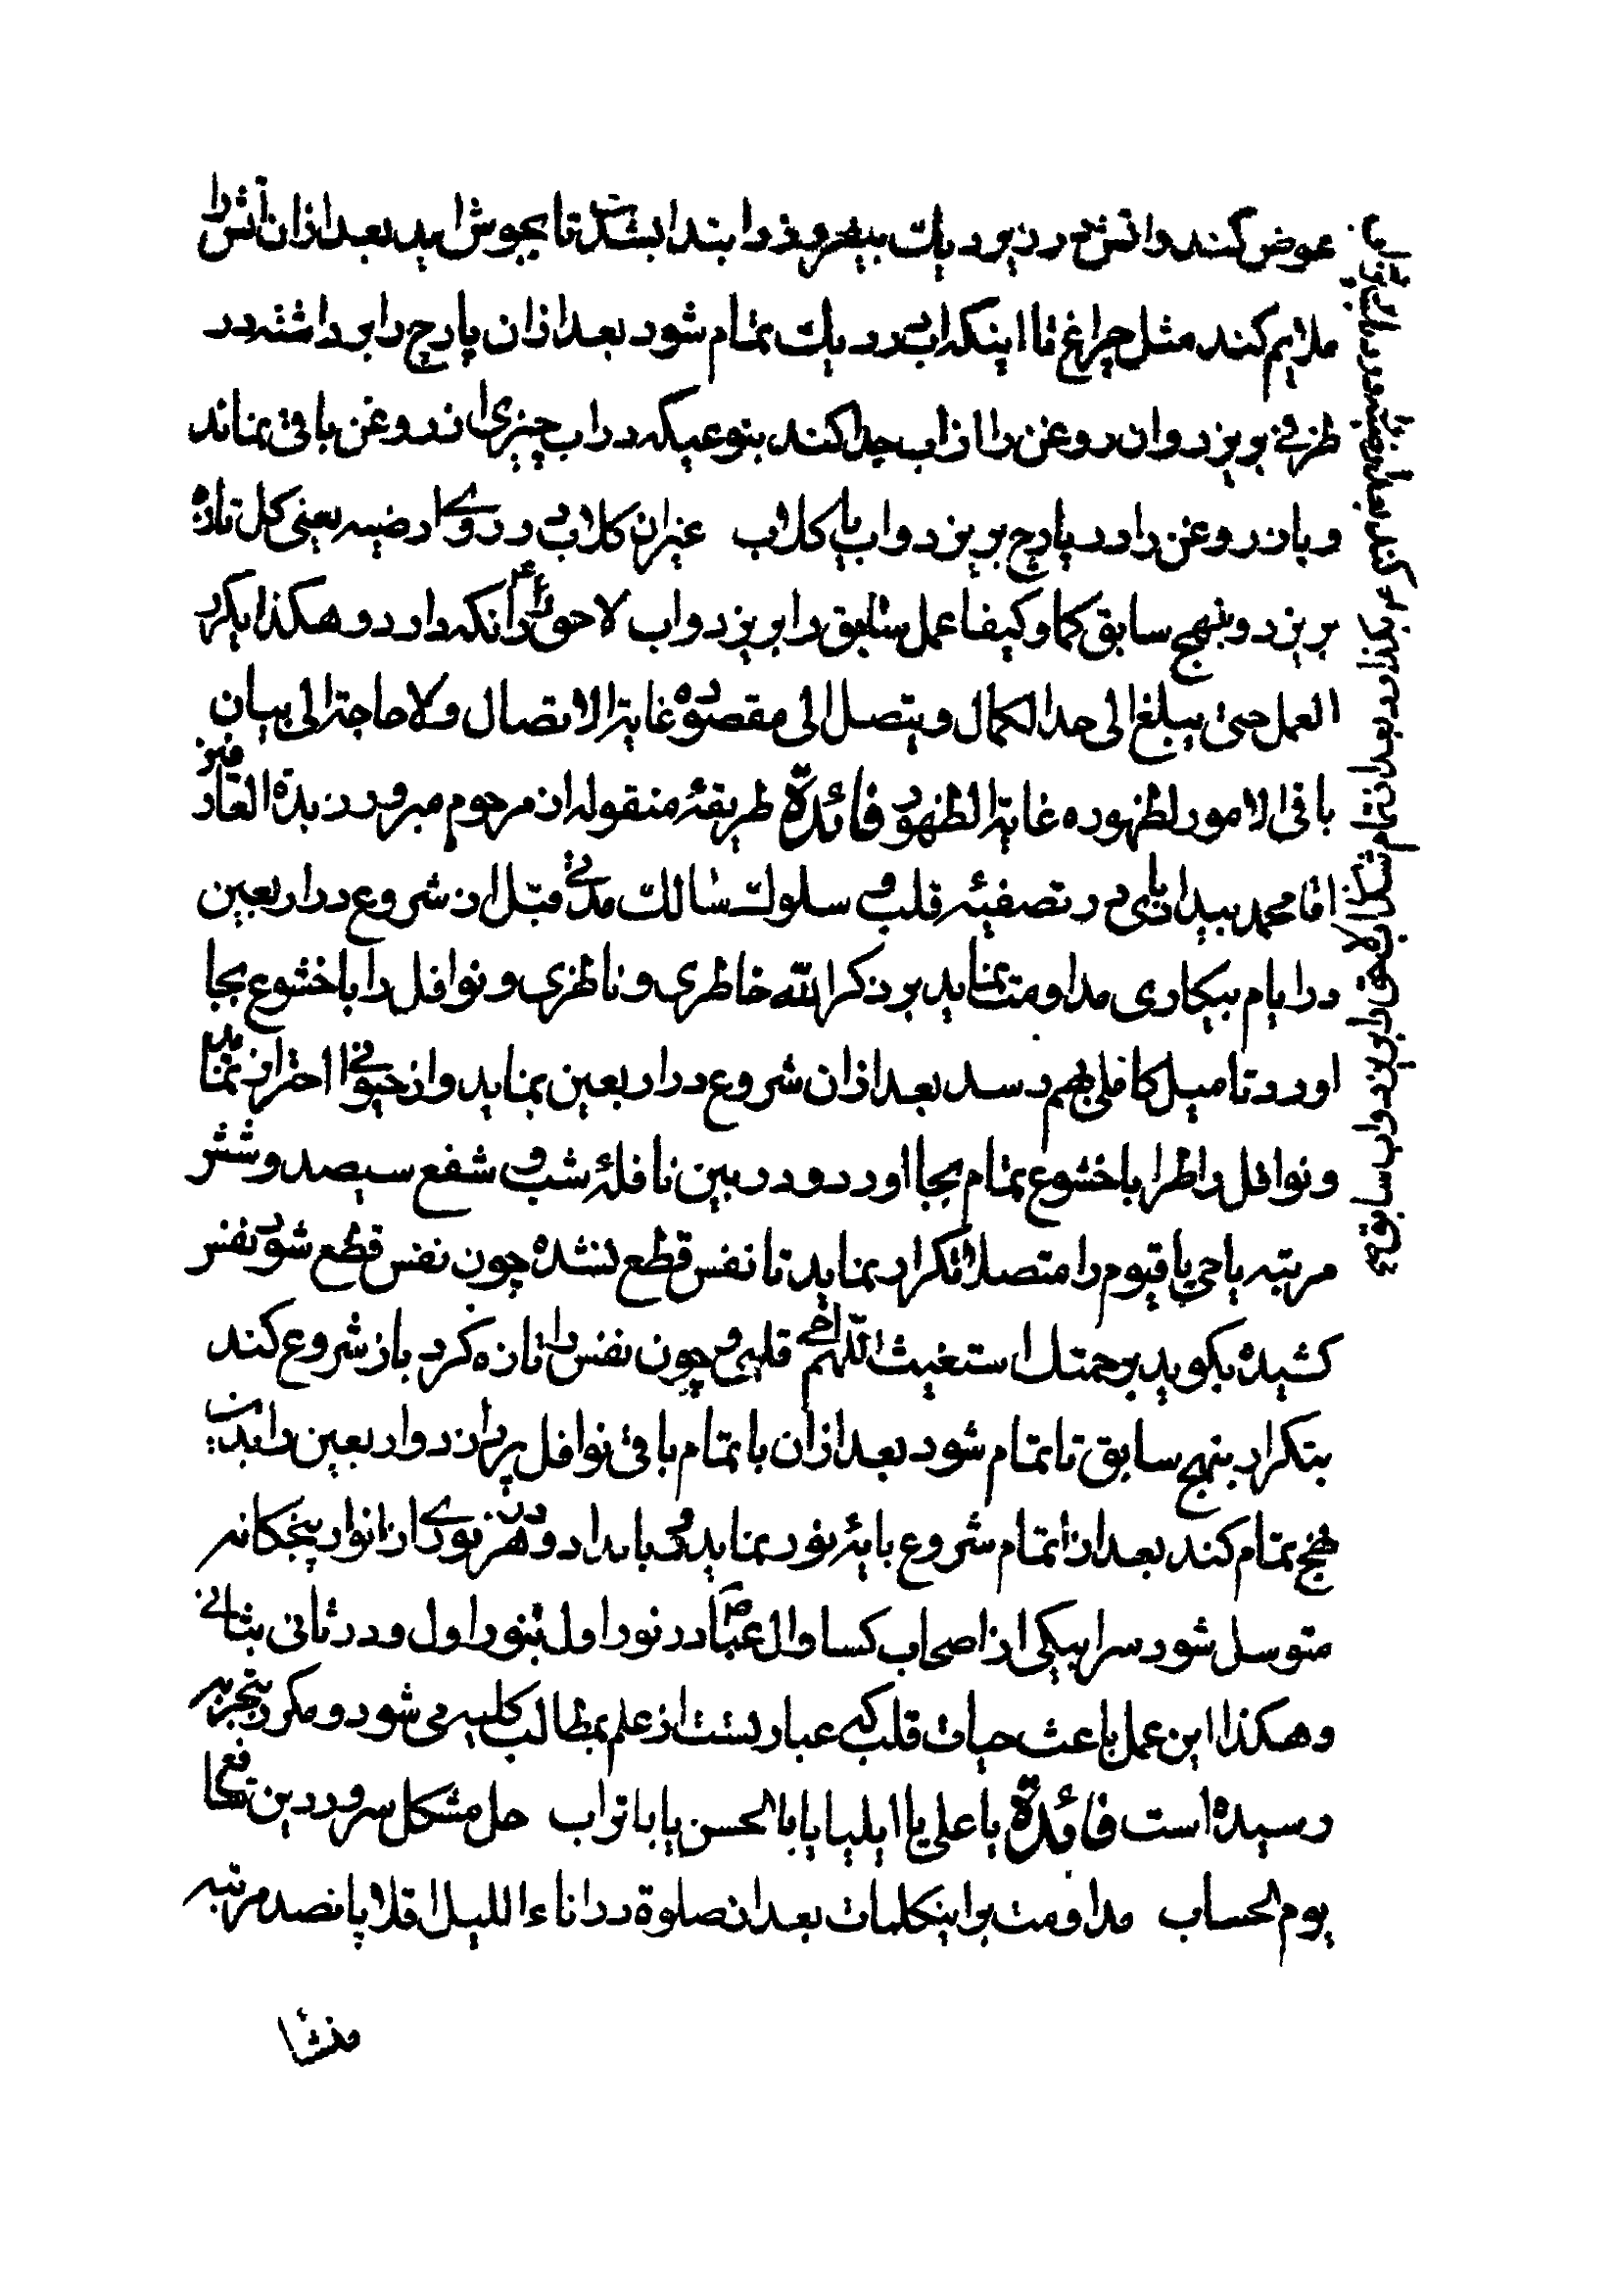 عوض کنند و اتش در زیر دیک بیفروزد ابتدا بشدت تا بجوش اید بعد ازان اتش را
ملایم کند مثل چراغ تا اینکه اب در دیک تمام شود بعد ازان پارچ را برداشته در
ظرفی بریزد و ان روغن را از اب جدا کند بنوعیکه در اب چیزی از روغن باقی نماند
و باز روغن را در پارچ بریزد و اب یا کلاب غیر ان کلابی در روی ارضیه یعنی کل تازه
بریزد و بنهج سابق کما و کیفا عمل سابق را بریزد و اب لاحق را نکه دارد و هکذا یکرر
العمل حتی یبلغ الی حد الکمال و یتصل الی مقصوده غایة الاتصال ولا حاجة الی بیان
باقی الامور لظهوره غایة الظهور فائدة طریقهٔ منقوله از مرحوم مبرور زبدة العارفین
اقا محمد بیدابادی در تصفیهٔ قلب و سلوک سالک مدتی قبل از شروع در اربعین
در ایام بیکاری مداومت نماید بر ذکر الله خاطری و ناظری و نوافل را با خشوع بجا
اورد تا میل کاملی بهم رسد بعد ازان شروع در اربعین نماید و از حیوانی احتراز نماید
و نوافل را طرا با خشوع تمام بجا اورد و در بین نافلهٔ شب و شفع سیصد و شش
مرتبه یا حی یا قیوم را متصلا تکرار نماید تا نفس قطع نشده چون نفس قطع شود نفس
کشیده بکوید برحمتک استغیث اللهم احی قلبی و چون نفس را تازه کرد باز شروع کند
بتکرار بنهج سابق تا تمام شود بعد ازان باتمام باقی نوافل پردازد و اربعین را بدین
نهج تمام کند بعد از اتمام شروع بایهٔ نور نماید در بامداد و در هر نوری از انوار پنجکانه
متوسل شود سرا بیکی از اصحاب کسا و ال عبا در نور اول بنور اول و در ثانی بثانی
و هکذا این عمل باعث حیات قلب که عبارتست از علم بمطالب کلیه می شود و مکرر بتجربه
رسیده است فائدة یا علی یا ایلیا یا با الحسن یا با تراب حل مشکل سرور دین شافع
یوم الحساب مداومت بر اینکلمات بعد از صلوة در اناء اللیل اقلا پانصد مرتبه
منشا
کند بعد ازان تمام شد اب لاحق را بریزد و اب سابق